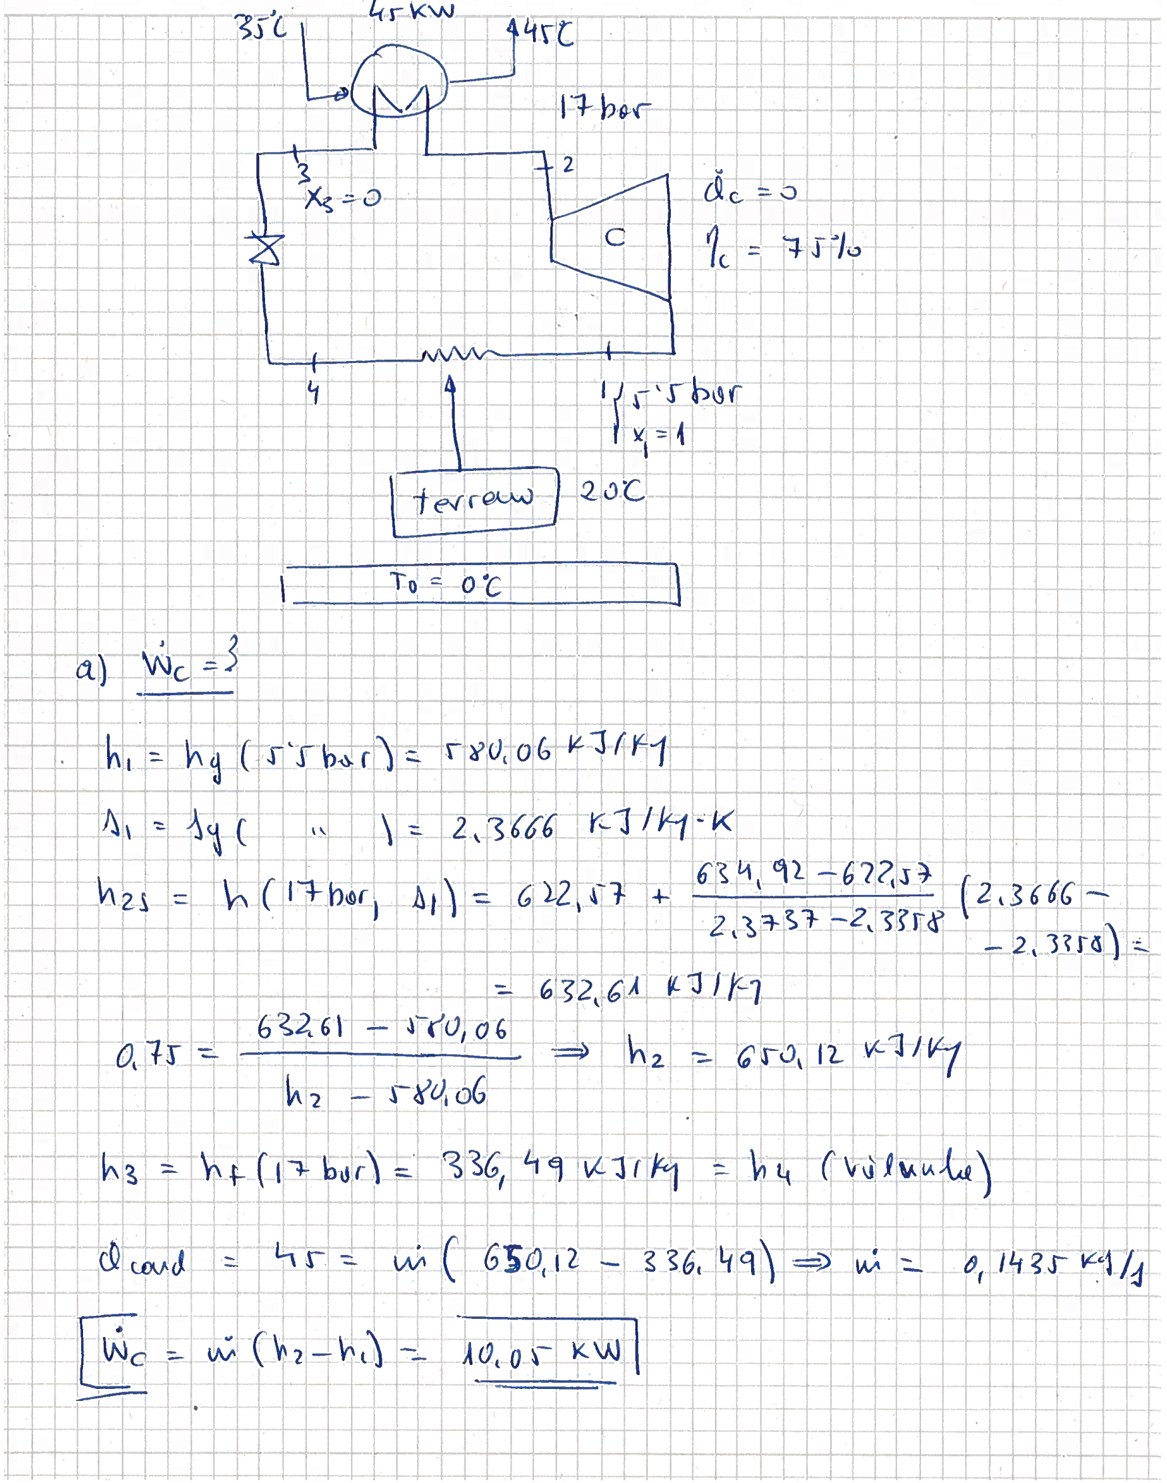 45 KW
35°C
45°C
17 bar
2
3
x₃ = 0
Q̇c = 0
C
ηc = 75%
4
1
5'5 bar
x₁ = 1
terreno
20°C
T₀ = 0°C
a) Ẇc = ?
h₁ = hg (5'5 bar) = 580,06 KJ/Kg
s₁ = sg ( " ) = 2,3666 KJ/Kg·K
h₂s = h (17 bar, s₁) = 622,57 + (634,92 - 622,57)/(2,3737 - 2,3358) (2,3666 -
- 2,3358) =
= 632,61 KJ/Kg
0,75 = (632,61 - 580,06)/(h₂ - 580,06) ⇒ h₂ = 650,12 KJ/Kg
h₃ = hf (17 bar) = 336,49 KJ/Kg = h₄ (válvula)
Q̇cond = 45 = ṁ ( 650,12 - 336,49) ⇒ ṁ = 0,1435 Kg/s
Ẇc = ṁ (h₂ - h₁) = 10,05 KW